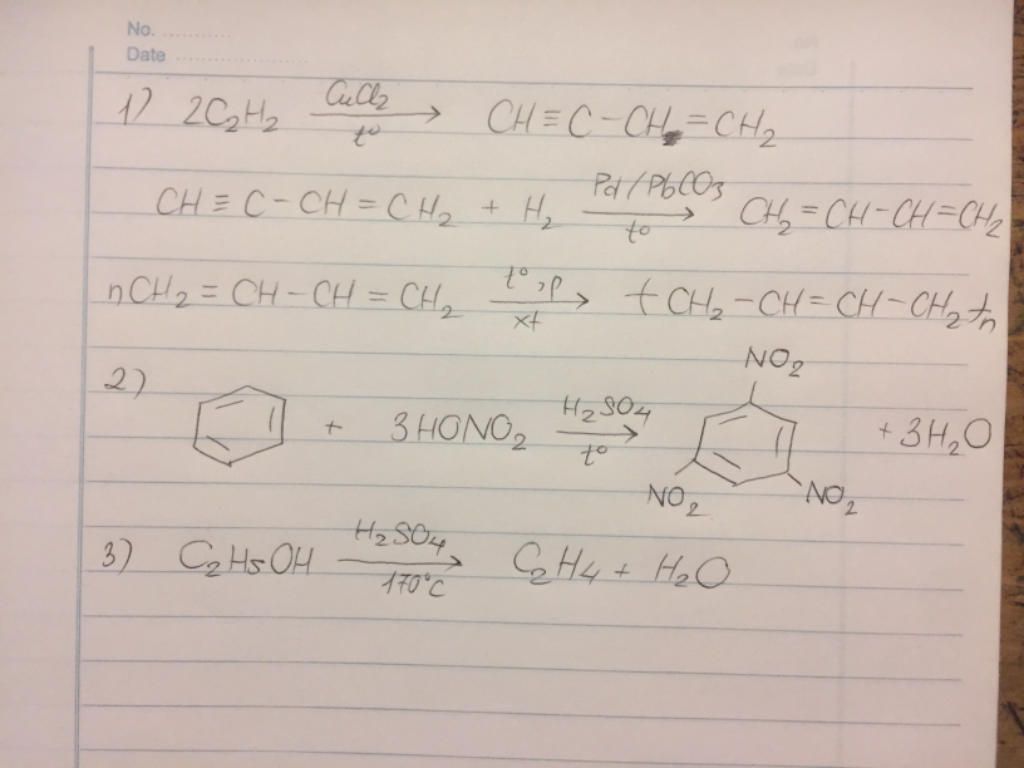 No. ............
Date ........................
1) 2C₂H₂ —CuCl₂/t°→ CH≡C-CH=CH₂
CH≡C-CH=CH₂ + H₂ —Pd/PbCO₃/t°→ CH₂=CH-CH=CH₂
nCH₂=CH-CH=CH₂ —t°,p/xt→ (CH₂-CH=CH-CH₂)n
2) + 3HONO₂ —H₂SO₄/t°→ NO₂ NO₂ NO₂ + 3H₂O
3) C₂H₅OH —H₂SO₄/170°C→ C₂H₄ + H₂O